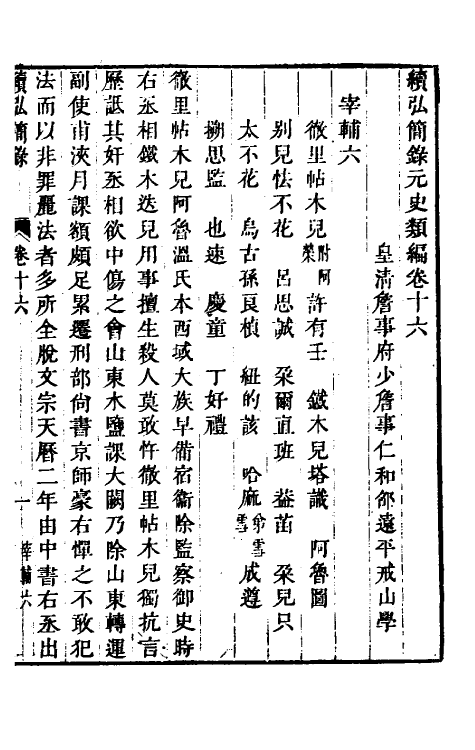 續弘簡錄元史類編卷十六
皇淸詹事府少詹事仁和邵遠平戒山學
宰輔六
徹里帖木兒附阿榮 許有壬 鐵木兒塔識 阿魯圖
别兒怯不花 呂思誠 朶爾直班 葢苗 朶兒只
太不花 烏古孫良楨 紐的該 哈麻弟雪雪 成遵
搠思監 也速 慶童 丁好禮
徹里帖木兒阿魯溫氏本西域大族早備宿衞除監察御史時
右丞相鐵木迭兒用事擅生殺人莫敢忤徹里帖木兒獨抗言
歷詆其奸丞相欲中傷之會山東水鹽課大闕乃除山東轉運
副使甫浹月課額頗足累遷刑部尙書京師豪右憚之不敢犯
法而以非罪麗法者多所全脫文宗天曆二年由中書右丞出
續弘簡錄 卷十六 一 宰輔六